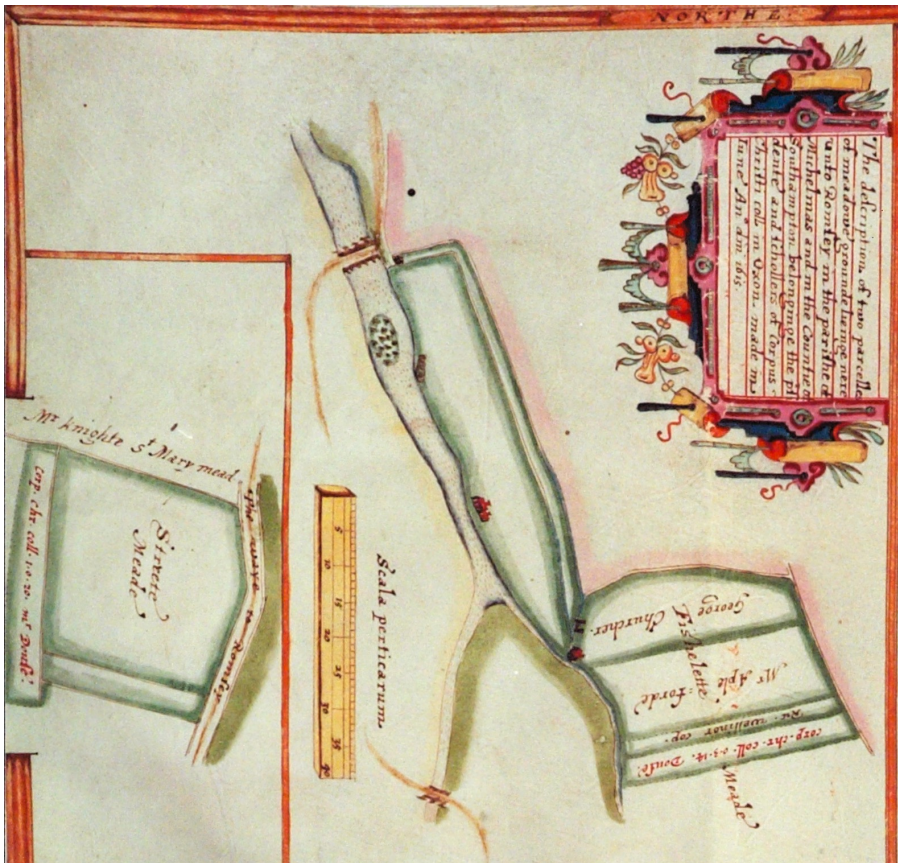 NORTHE
The description of two parcelle
of meadowe grounde lieinge nere
unto Romsey in the parishe of
Michelmas and in the Countie of
Southampton belonginge the
dente and schollers of Corpus
Christi coll in Oxon. made in
June An° dm 1615.
Mr knighte St Mary mead
The waye to Romsey
Corp. chr. coll. 1. 0. 20. mr Doufe
Strete
Meade
5
10
15
20
25
30
35
40
Scala perticarum
George
Churcher.
Fishelette
Mr Aple
=forde
wellmor cop.
corp. chr. coll. 0. 3. 14. Doufe
Meade